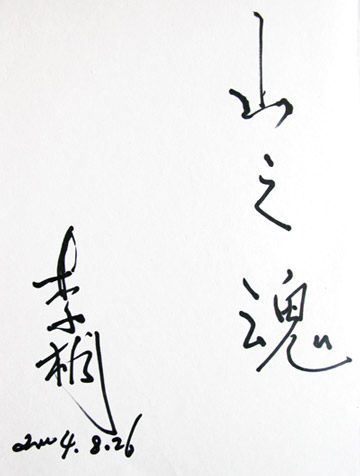 山之魂
李栁
2004.8.26